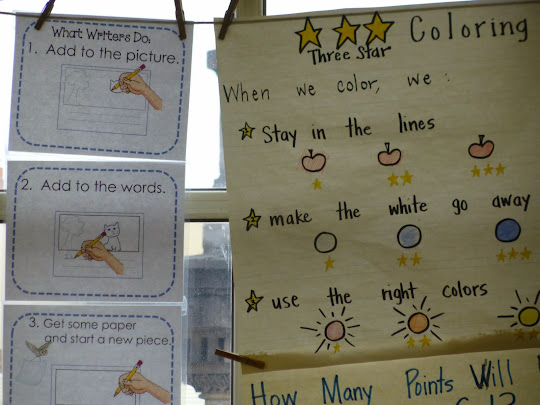 What Writers Do:
1. Add to the picture.
2. Add to the words.
3. Get some paper
and start a new piece.
Three Star Coloring
When we color, we :
Stay in the lines
make the white go away
use the right colors
How Many Points Will